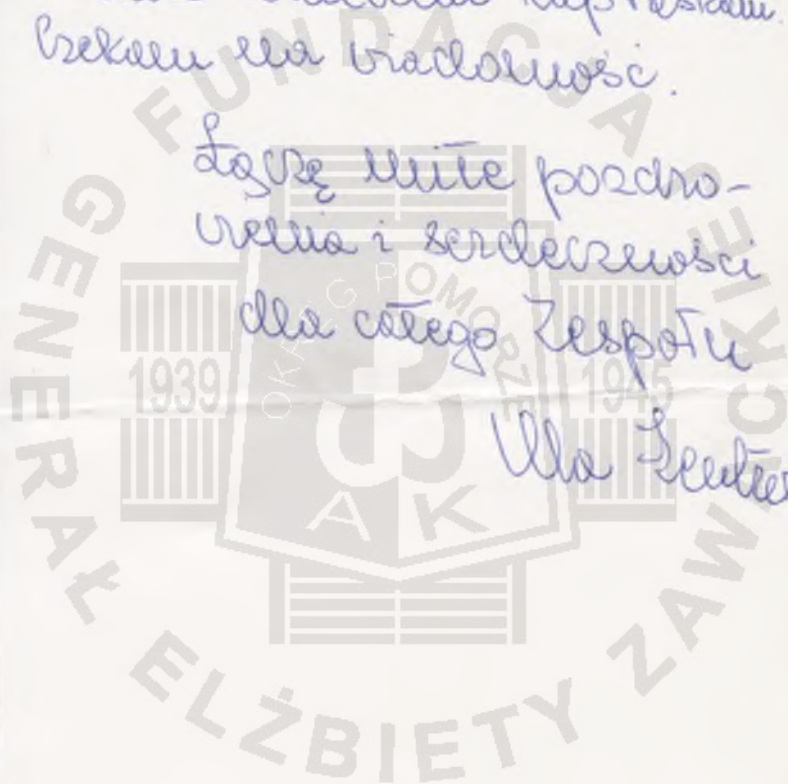 Czekam na wiadomość.
Łączę miłe pozdro-
wienia i serdeczności
dla całego Zespołu
Ula
FUNDACJA GENERAŁ ELŻBIETY ZAWACKIEJ
OKRĘG POMORZE
1939 1945
AK